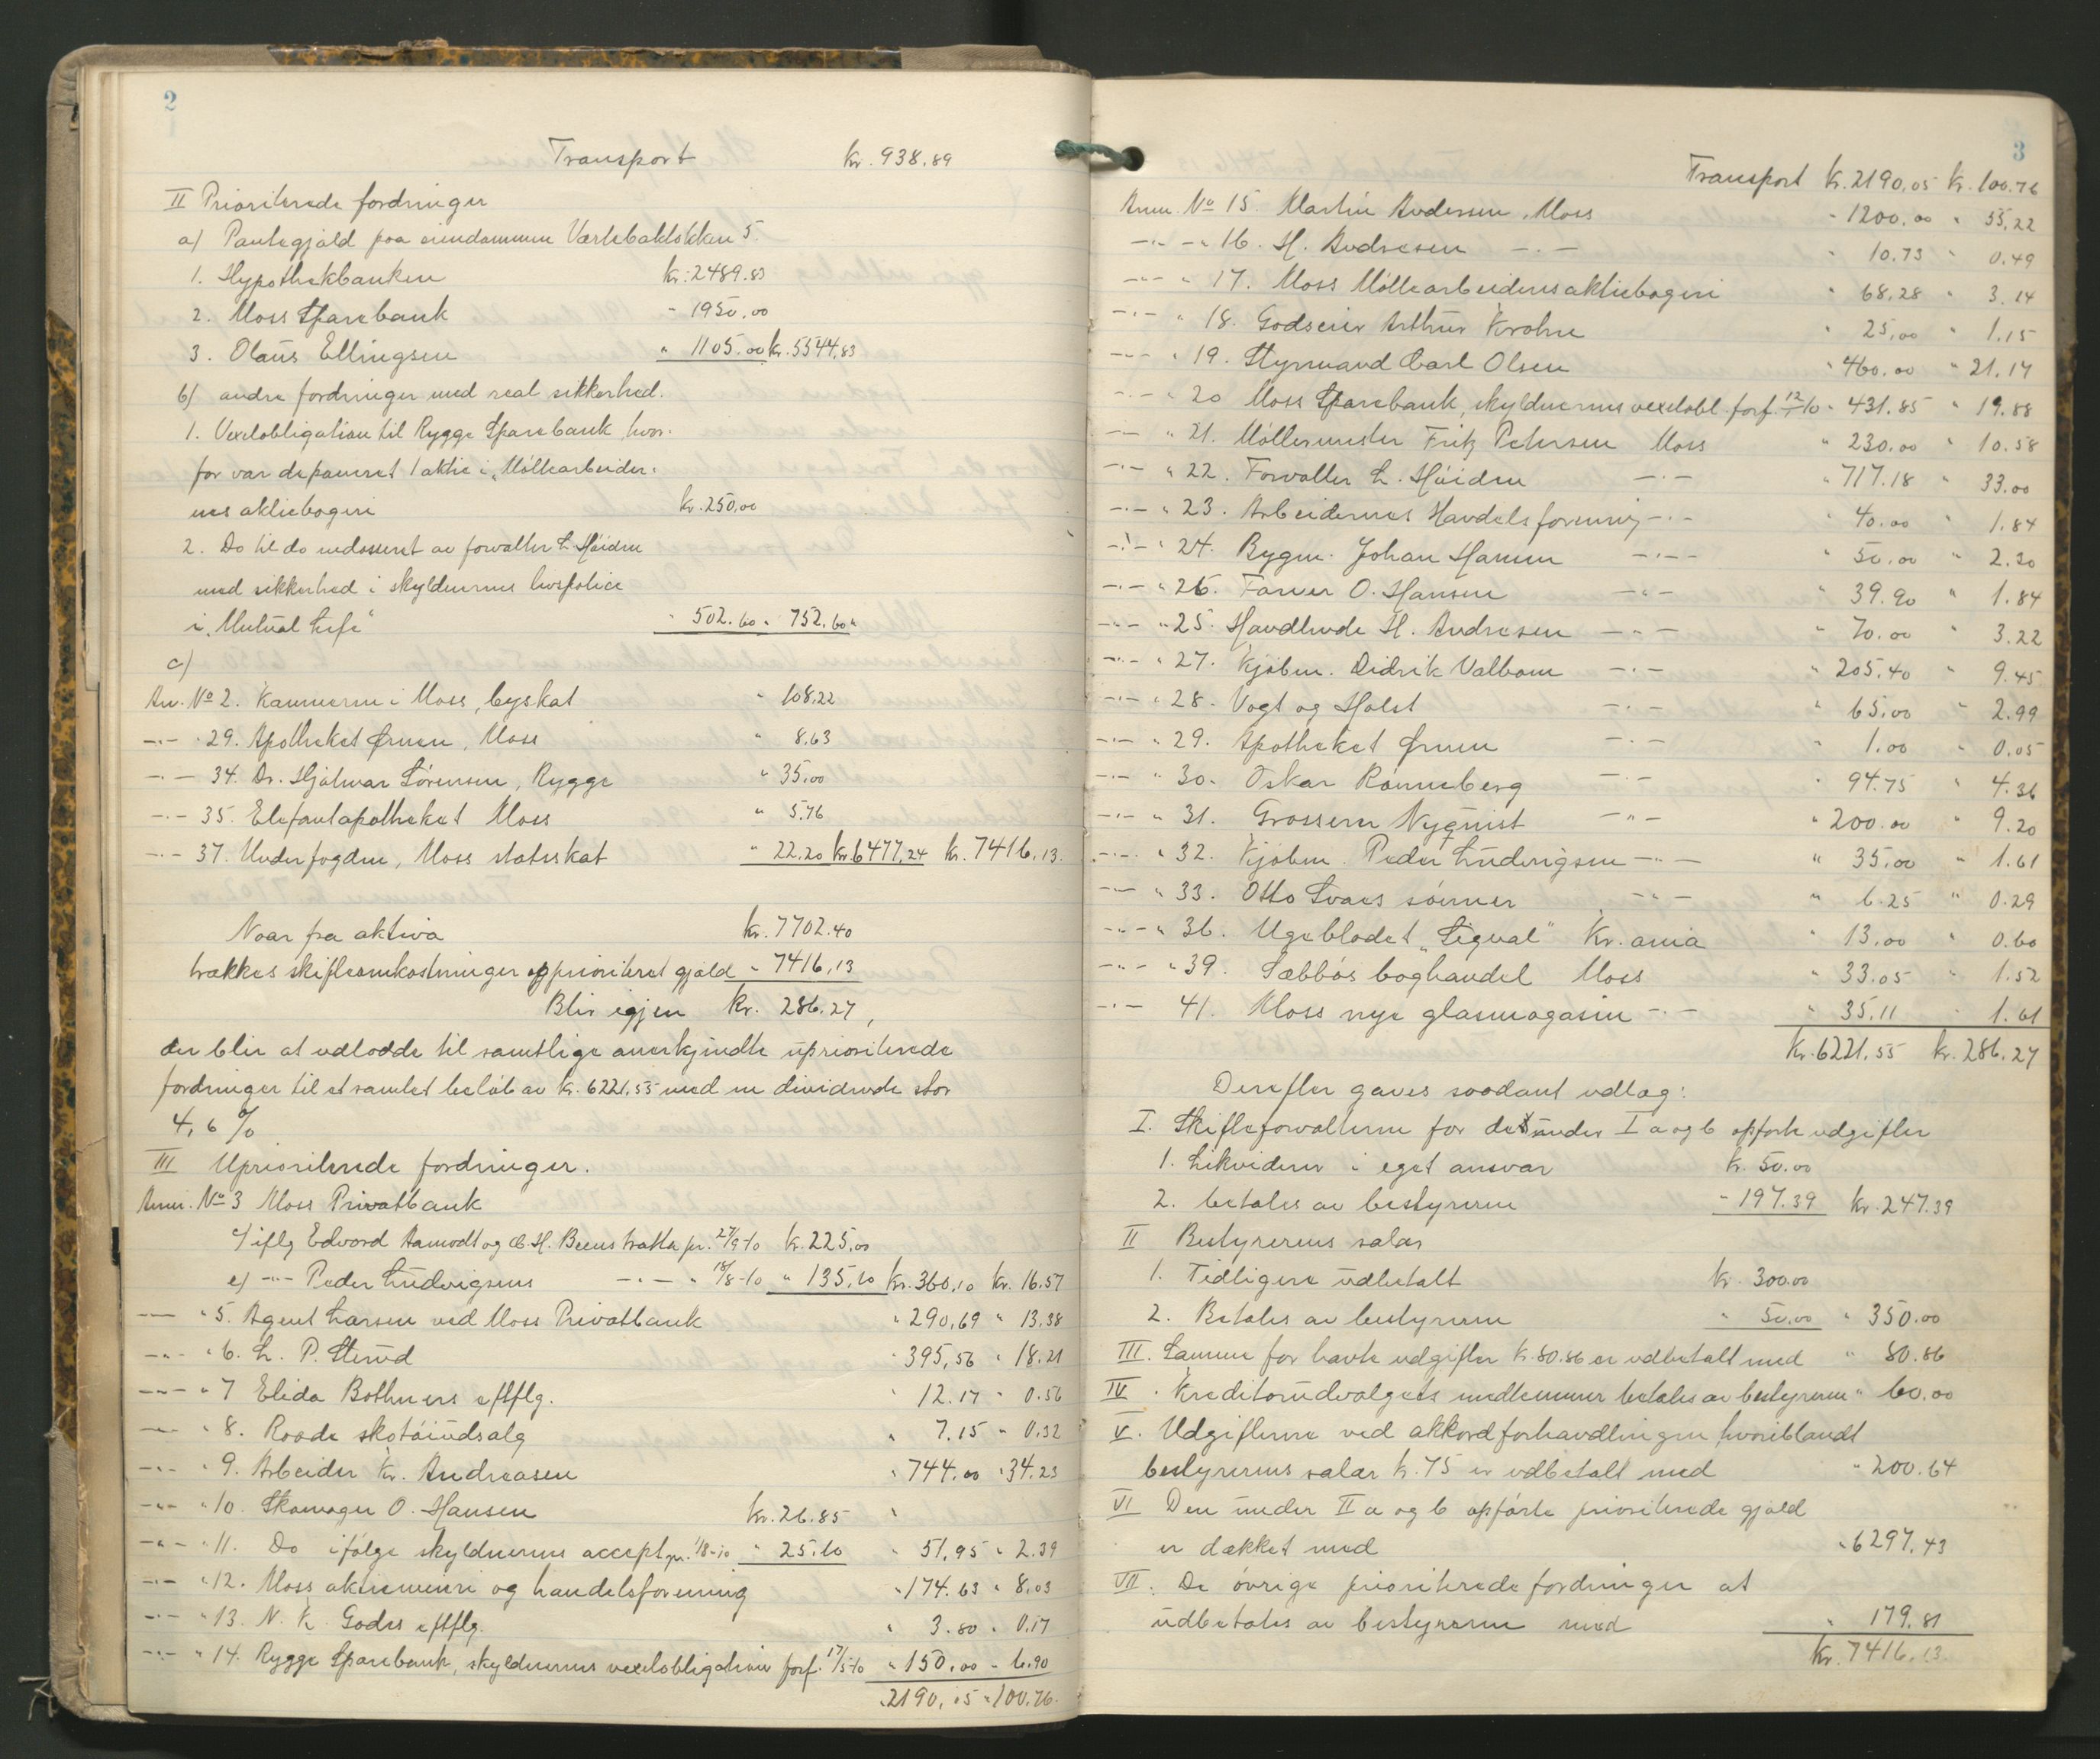 2
Transport kr. 938.89
II Prioriterede fordringer
a) Pantegjæld paa eiendommen Værlebakløkken 5.
1. Hypothekbanken kr. 2489.83
2. Moss Sparebank - 1950.00
3. Olaus Ellingsen " 1105.00 kr. 5544.83
b) andre fordringer med real sikkerhed.
1. Vexelobligation til Rygge Sparebank, hvor-
for var deponeret 1 aktie i "Møllearbeider-
nes aktiebageri kr. 250.00
2. Do til do endosseret av forvalter L. Høiden
med sikkerhed i skyldnerens livspolice
i "Mutual Life" " 502.60 " 752.60 "
c)
An. No 2. Kæmneren i Moss, byskat " 108.22
-"- " 29. Apotheket Ørnen, Moss " 8.63
-"- 34. Dr. Hjalmar Sørensen, Rygge " 35.00
-"- 35. Elefantapotheket Moss " 5.76
-"- 37. Underfogden, Moss statsskat " 22.20 kr. 6477.24 kr. 7416.13.
Naar fra aktiva kr. 7702.40
trækkes skifteomkostninger og prioritert gjæld " 7416,13
Blir igjen kr. 286.27,
der blir at udlodde til samtlige anerkjendte uprioriterede
fordringer til et samlet beløb av kr. 6221.55 med en dividende stor
4,6 %
III Uprioriterede fordringer.
Anm. No 3 Moss Privatbank
c) iflg Edvard Aamodt og H. Beens tratta pr. 27/9-10 kr. 225.00
e) -"- Peder Ludvigsens -"- " 18/8-10 " 135.10 kr. 360,10 kr. 16.57
-"- " 5. Agent Larsen ved Moss Privatbank " 290,69 " 13.38
-"- " 6. L. P. Sterud " 395,56 " 18.21
-"- " 7 Elida Bothners eftflg. " 12.17 " 0.56
-"- " 8. Raade skotøiudsalg " 7.15 " 0.32
-"- " 9. Arbeider Kr. Andreasen " 744.00 " 34.23
-"- " 10. Skomager O. Hansen kr. 26.85 "
-"- " 11. Do ifølge skyldnerens accept pr. 1/8-10 " 25.10 " 51,95 " 2.39
-"- " 12. Moss aktiemeieri og handelsforening " 174.63 " 8.03
-"- " 13. N. K. Godes eftflg. " 3.80 " 0.17
-"- " 14. Rygge Sparebank, skyldnerens vexelobligation forf. 17/5-10 " 150.00 " 6.90
" 2190,05 " 100.76.
3
Transport kr. 2190.05 kr. 100.76
Anm. No 15. Martin Andersen, Moss " 1200.00 " 55.22
-"- " 16. H. Andresen -"- " 10.73 " 0.49
-"- " 17. Moss Møllearbeideres aktiebageri " 68.28 " 3.14
-"- " 18. Godseier Arthur Krohn " 25,00 " 1.15
-"- " 19. Styrmand Carl Olsen " 460.00 " 21.17
-"- " 20 Moss Sparebank, skyldnerens vexelobl. forf. 12/1-10 " 431.85 " 19.88
-"- " 21. Møllermester Fritz Petersen Moss " 230.00 " 10.58
-"- " 22. Forvalter L. Høiden -"- " 717.18 " 33.00
-"- " 23. Arbeidernes Handelsforening -"- " 40.00 " 1.84
-"- " 24. Bygm. Johan Hansen -"- " 50.00 " 2.30
-"- " 26. Farver O. Hansen -"- " 39.90 " 1.84
-"- " 25. Handlende H. Andresen -"- " 70.00 " 3.22
-"- " 27. Kjøbm. Didrik Valbom -"- " 205.40 " 9.45
-"- " 28. Vogt og Holst -"- " 65.00 " 2.99
-"- " 29. Apotheket Ørnen -"- " 1.00 " 0.05
-"- " 30. Oskar Rønneberg -"- " 94.75 " 4.36
-"- " 31. Grosserer Nyquist -"- " 200.00 " 9.20
-"- " 32. Kjøbm. Peder Ludvigsen -"- " 35.00 " 1.61
-"- " 33. Otto Svaes sønner -"- " 6.25 " 0.29
-"- " 36. Ugebladet "Signal" Kr.ania " 13.00 " 0.60
-"- " 39. Sæbbøs boghandel Moss " 33.05 " 1.52
-"- 41. Moss nye glasmagasin -"- " 35.11 " 1.61
kr. 6221.55 kr. 286.27
Derefter gaves saadant udlæg:
I. Skifteforvalteren for de under I a og b opførte udgifter
1. Likviderer i eget ansvar kr. 50.00
2. betales av bestyreren " 197.39 kr. 247.39
II Bestyrerens salær
1. Tidligere udbetalt kr. 300.00
2. Betales av bestyreren " 50.00 " 350.00
III. Samme for havte udgifter kr. 80.86 er udbetalt med " 80.86
IV. Kreditorudvalgets medlemmer betales av bestyreren " 60.00
V. Udgifterne ved akkordforhandlingen hvoriblandt
bestyrerens salær kr. 75 er udbetalt med " 200.64
VI Den under II a og b opførte prioriterede gjæld
er dækket med " 6297.43
VII. De øvrige prioriterede fordringer at
udbetales av bestyreren med " 179.81
kr. 7416.13.